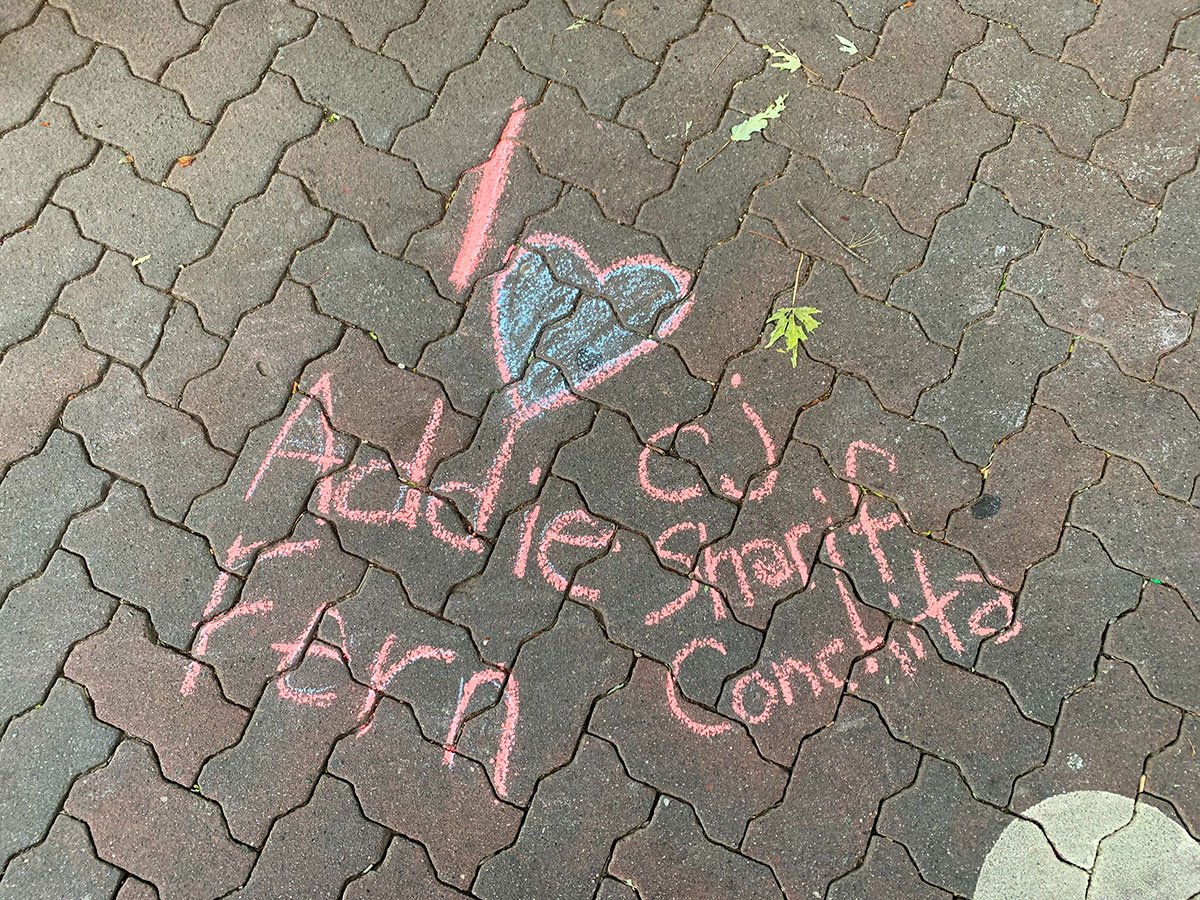 I ♥
Addie
Fern
CJ
Sharif
Conchita